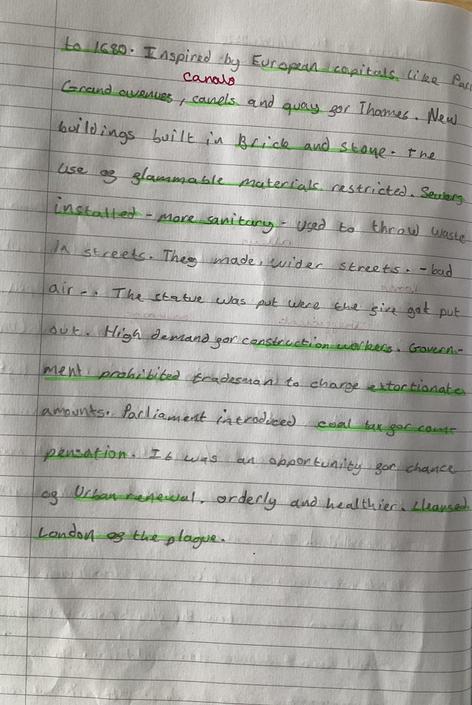 to 1680. Inspired by European capitals, like Par
canals
Grand avenues, canels and quay for Thames. New
buildings built in Brick and stone. The
use of flammable materials restricted. Sewers
installed - more sanitary - used to throw waste
in streets. They made wider streets. - bad
air -. The statue was put were the fire got put
out. High demand for construction workers. Govern-
ment prohibited tradesman to charge extortionate
amounts. Parliament introduced coal tax for com-
pensation. It was an opportunity for chance
of Urban renewal, orderly and healthier. Cleansed
London of the plague.